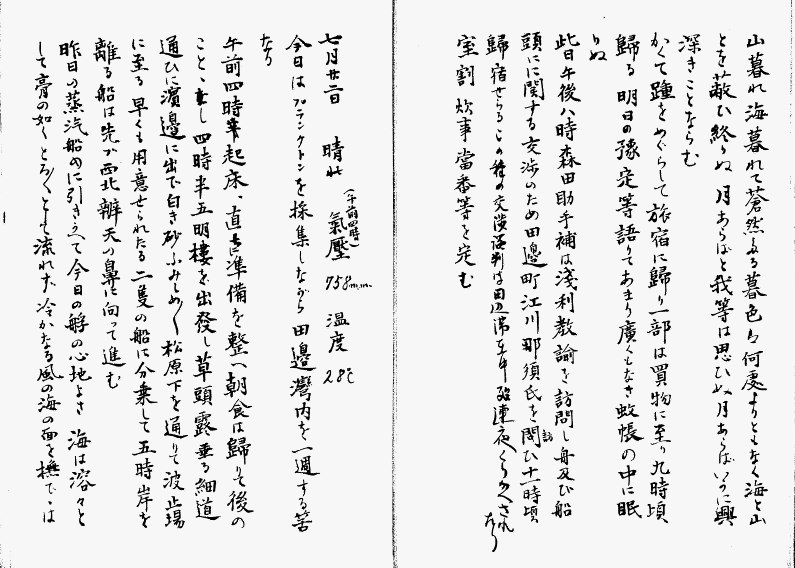 山暮れ海暮れて蒼然たる暮色は何處よりともなく海と山
とを蔽ひ終りぬ 月あらばと我等は思ひぬ月あらばいかに興
深きことならむ
かくて踵をめぐらして旅宿に歸り一部は買物に至り九時頃
歸る 明日の豫定等語りてあまり廣くもなき蚊帳の中に眠
りぬ
此日午後八時森田助手補は淺利教諭を訪問し舟及び船
頭にに関する交渉のため田邊町江川那須氏を訪ひ十一時頃
歸宿せらる この種の交渉談判は田辺滞在中 連夜くりかへされ
たり
室割 炊事當番等を定む
七月廿二日 晴れ (午前四時) 氣壓 758m.m. 温度 28℃
今日はプランクトンを採集しながら田邊灣内を一週する筈
なり
午前四時半起床、直ちに準備を整へ朝食は歸りて後の
こと、し四時半五明樓を出發し草頭露垂る細道
通ひに濱邊に出で白き砂ふみしめ〱松原下を通りて波止場
に至る 早くも用意せられたる二隻の船に分乗して五時岸を
離る船は先づ西北辨天の鼻に向って進む
昨日の蒸汽船のに引きかへて今日の艀の心地よさ 海は溶々と
して膏の如くとろ〱とも流れず 冷かなる風の海の面を撫でゝは